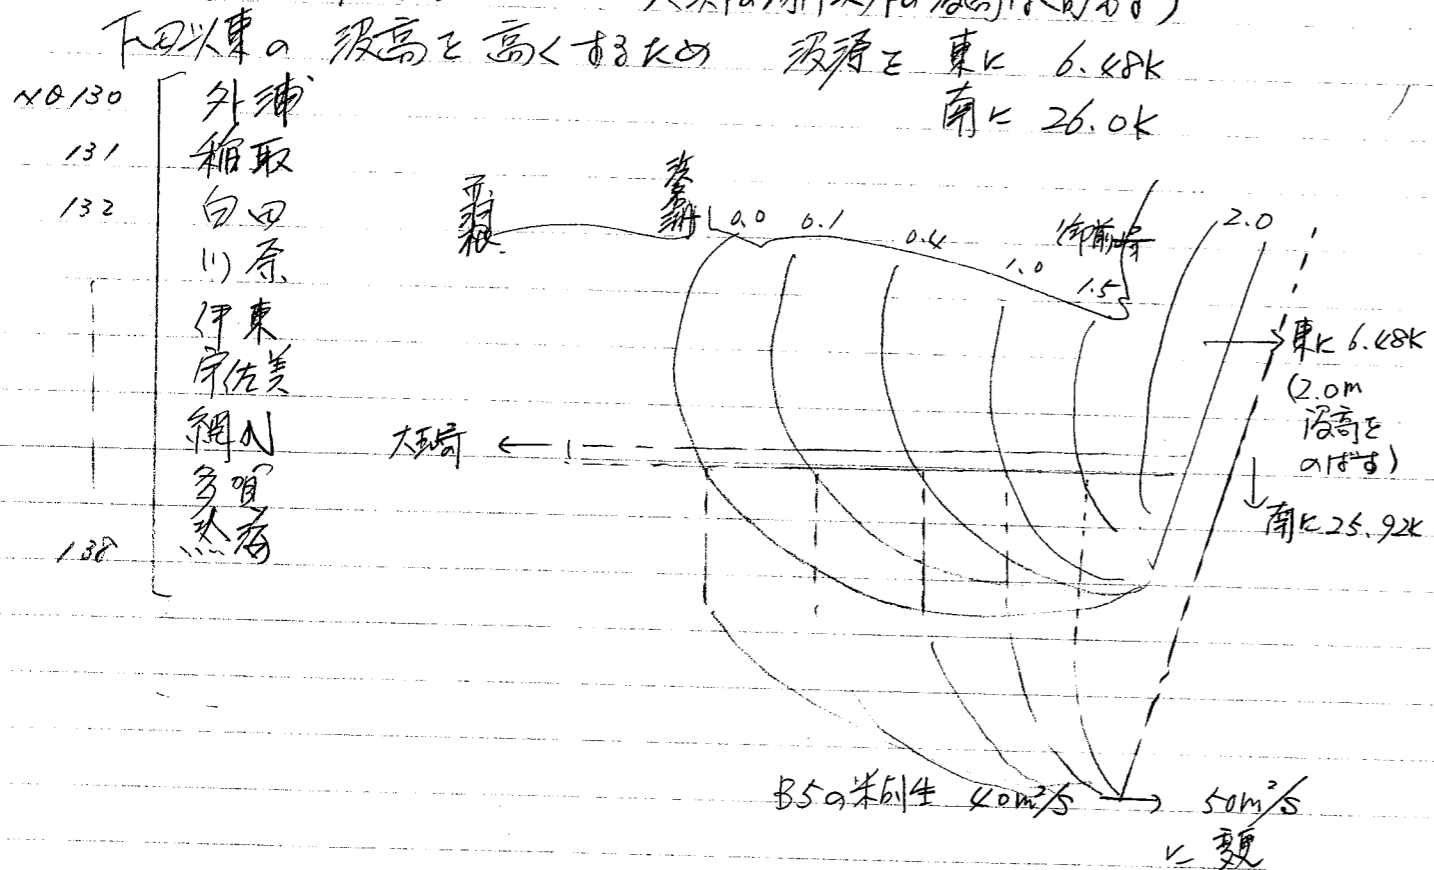 下田以東の 波高を 高くするため 波源を 東に 6.48K
南に 26.0K
No130 外浦
131 稲取
132 白田
川奈
伊東
宇佐美
網代
多賀
138 熱海
0.0
0.1
0.4
1.0
1.5
御前崎
2.0
東に 6.48K
(2.0m
波高を
のばす)
南に 25.92K
B5の粘性 40m²/s → 50m²/s
に 変更